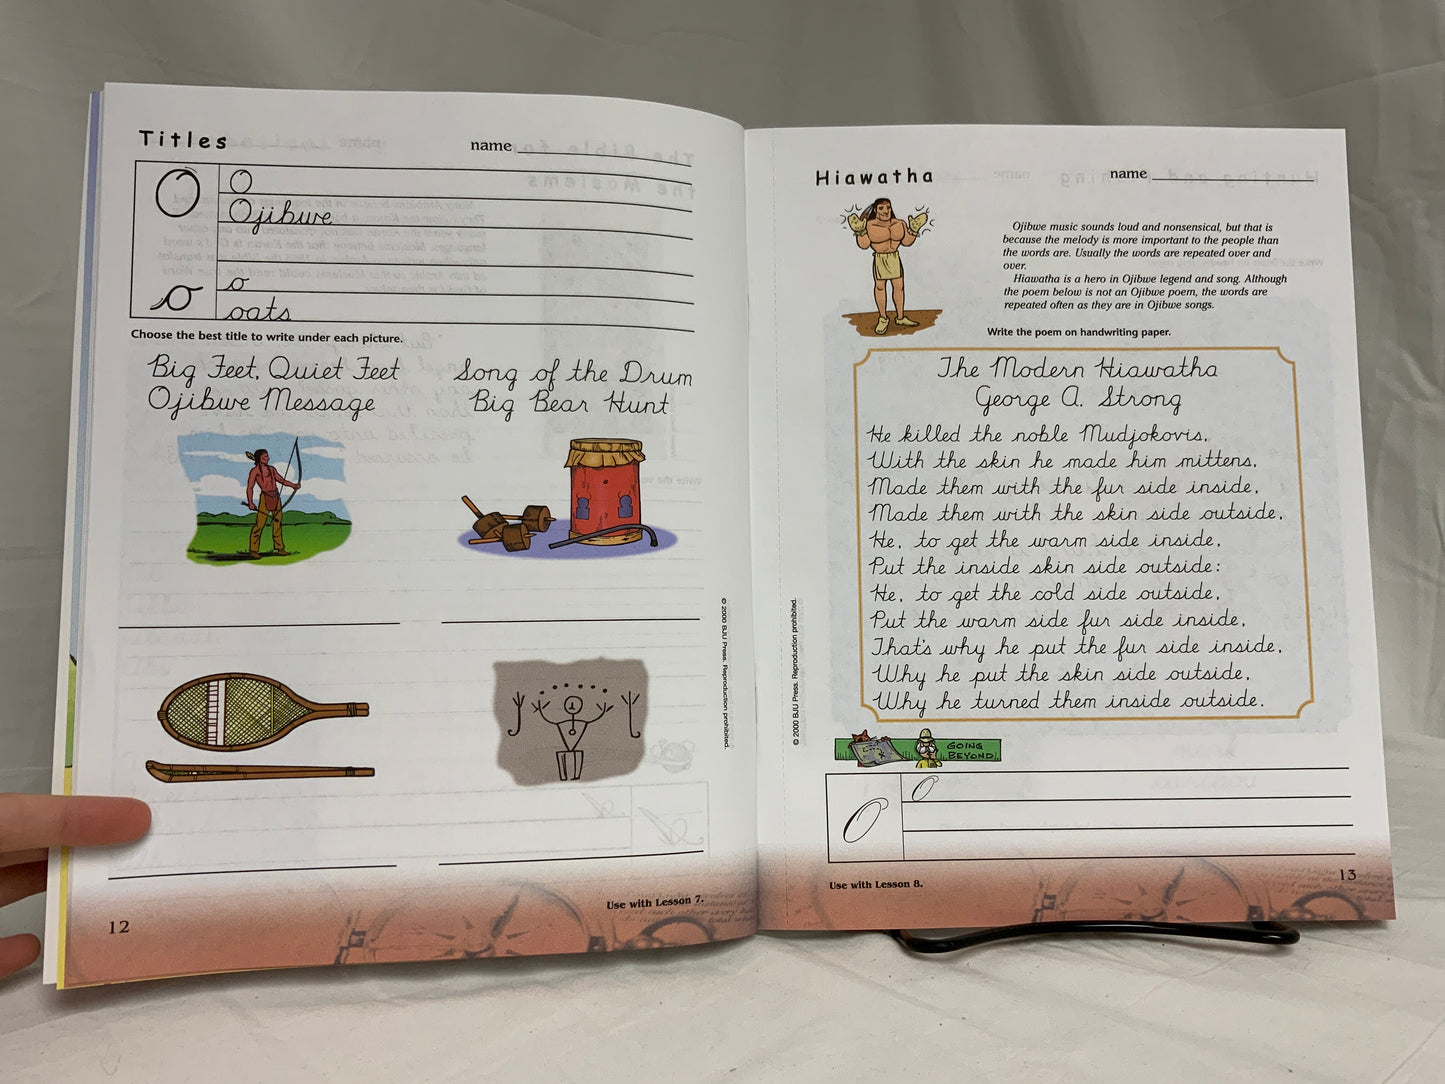 Titles
name
O
O
Ojibwe
o
o
oats
Choose the best title to write under each picture.
Big Feet, Quiet Feet
Song of the Drum
Ojibwe Message
Big Bear Hunt
© 2000 BJU Press. Reproduction prohibited.
Use with Lesson 7.
12
Hiawatha
name
Ojibwe music sounds loud and nonsensical, but that is
because the melody is more important to the people than
the words are. Usually the words are repeated over and
over.
Hiawatha is a hero in Ojibwe legend and song. Although
the poem below is not an Ojibwe poem, the words are
repeated often as they are in Ojibwe songs.
Write the poem on handwriting paper.
The Modern Hiawatha
George A. Strong
He killed the noble Mudjokovis,
With the skin he made him mittens,
Made them with the fur side inside,
Made them with the skin side outside,
He, to get the warm side inside,
Put the inside skin side outside:
He, to get the cold side outside,
Put the warm side fur side inside,
That's why he put the fur side inside,
Why he put the skin side outside,
Why he turned them inside outside.
© 2000 BJU Press. Reproduction prohibited.
GOING
BEYOND
O
O
Use with Lesson 8.
13